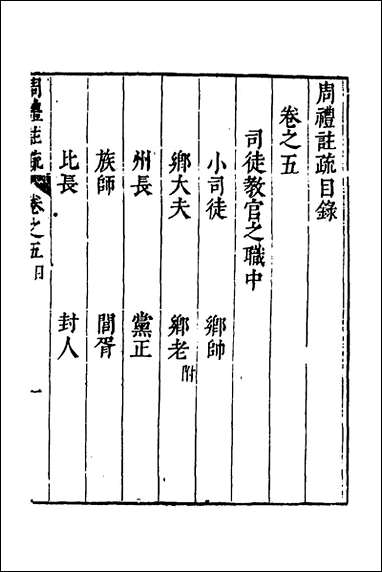 周禮註疏目錄
卷之五
司徒教官之職中
小司徒　鄉帥
鄉大夫　鄉老附
州長　黨正
族師　閭胥
比長　封人
周禮註疏　卷之五目　一